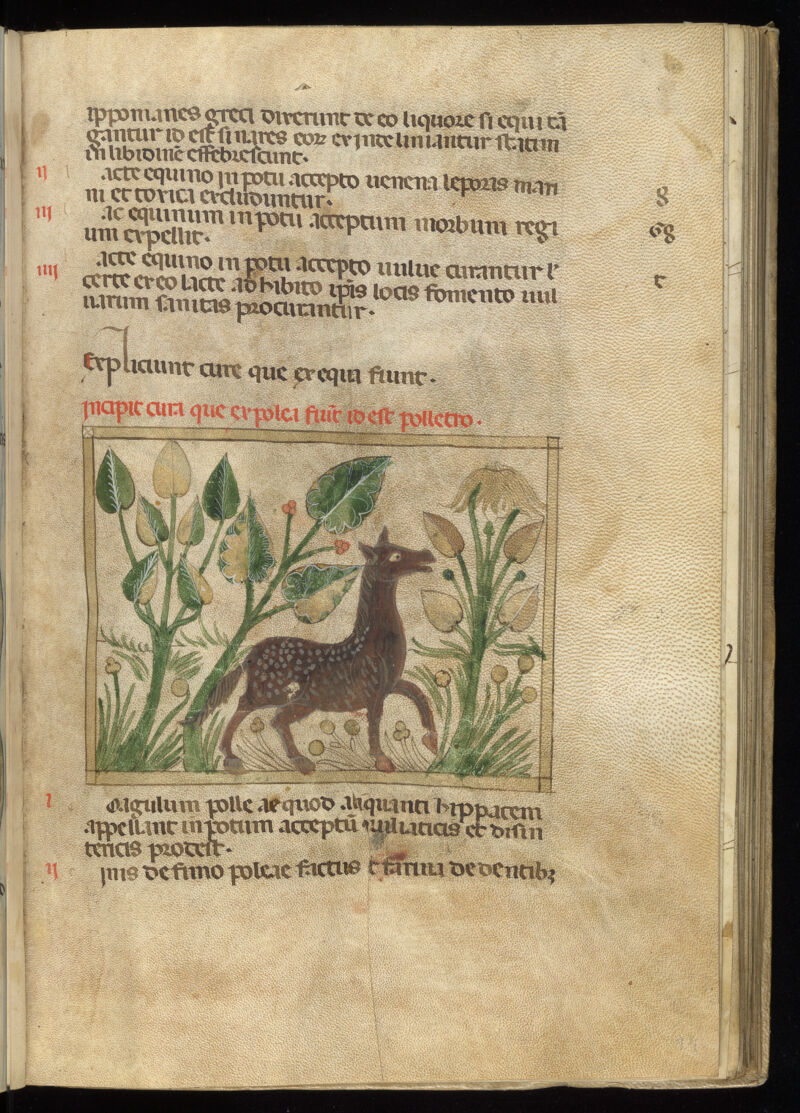 ipponianes greci dixerunt de eo liquore si equi tā
gantur id est si nares eoꝝ ex inde liniantur statim
in libidinē effebrescunt.
ij acte equino in potu accepto uenena leporis mari
ni et toxica excluduntur. g
iij ac equinum in potu acceptum morbum regi
um expellit. 68
iiij acte equino in potu accepto uulue curantur ł
certe ex eo lacte adhibito ip̄is locis fomento uul
uarum sanitas procurantur. t
Expliciunt cure que ex equa fiunt.
Incipit cura que ex polea fiūt id est polletro.
i oagulum polle ae quod aliquanti hippacem
appellant in potum acceptū uul uaticis et disin
tericis prodest.
ij inis de fimo poleae factus t̄ farina de dentibꝫ